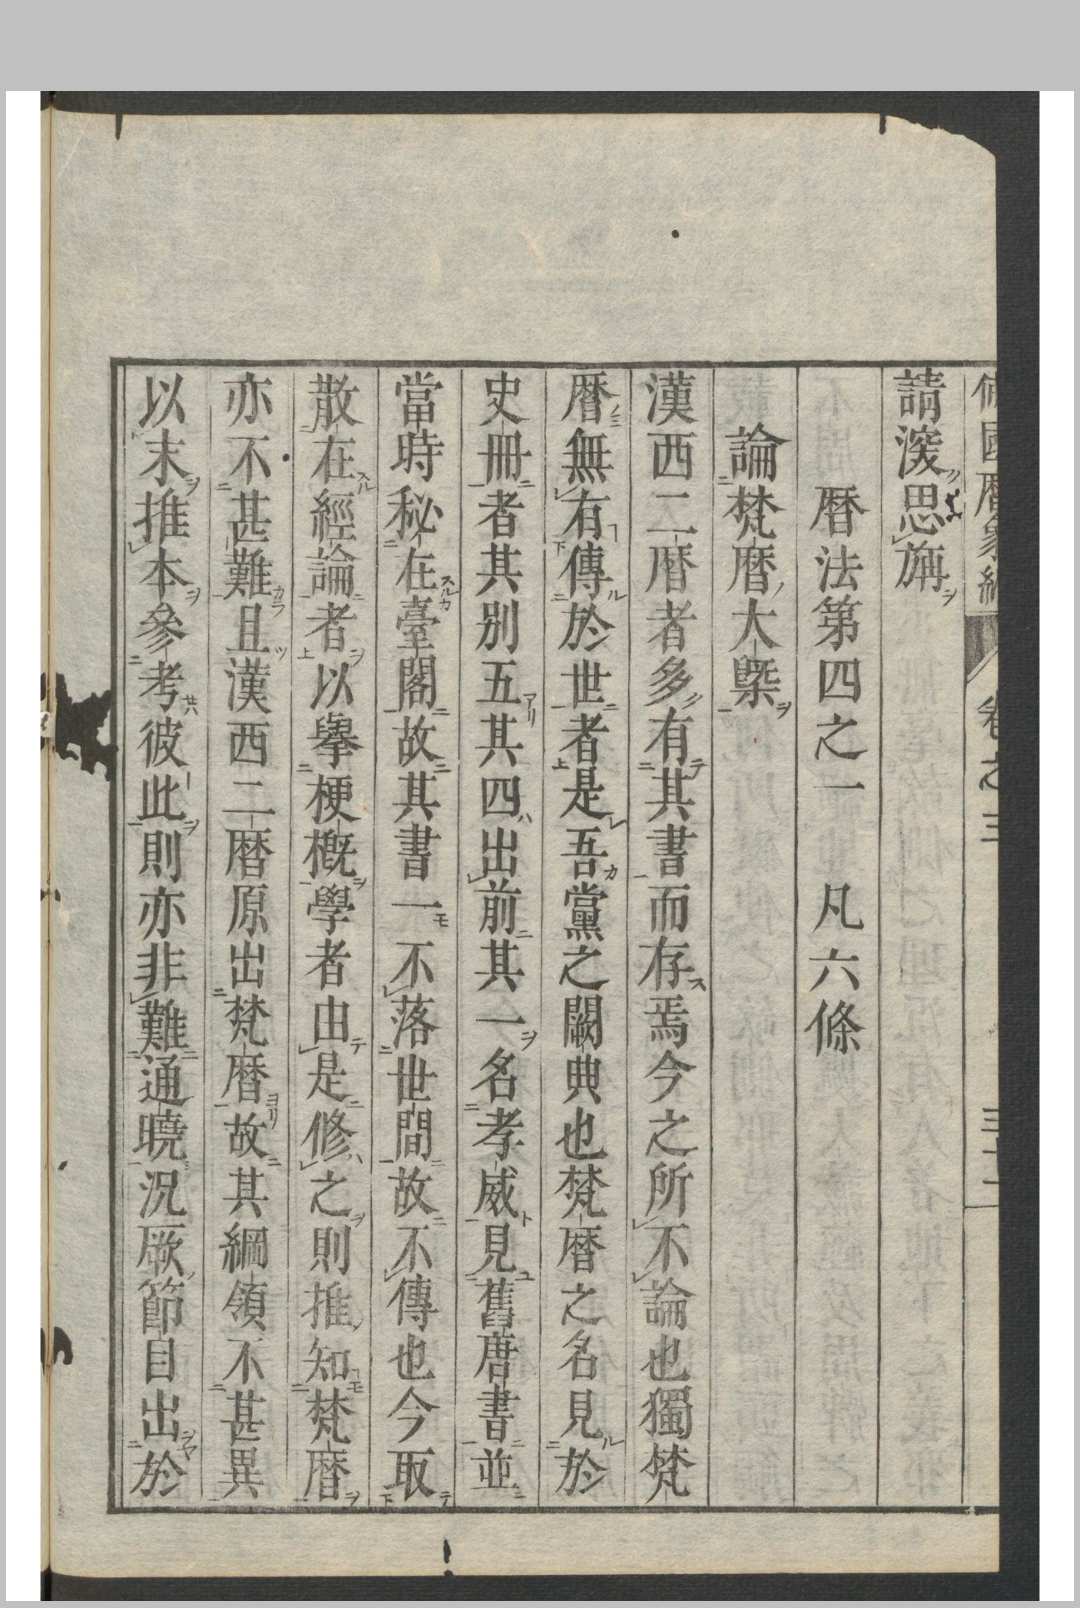 佛國曆象編 卷之三 三十二
請湥思旃
曆法第四之一 凡六條
論梵曆大槩
漢西二曆者多有其書而存焉今之所不論也獨梵
曆無有傳於世者是吾黨之闕典也梵曆之名見於
史冊者其別五其四出前其一名孝威見舊唐書並
當時秘在臺閣故其書一不落世間故不傳也今取
散在經論者以擧梗槪學者由是修之則推知梵曆
亦不甚難且漢西二曆原出梵曆故其綱領不甚異
以末推本參考彼此則亦非難通曉況厥節目出於